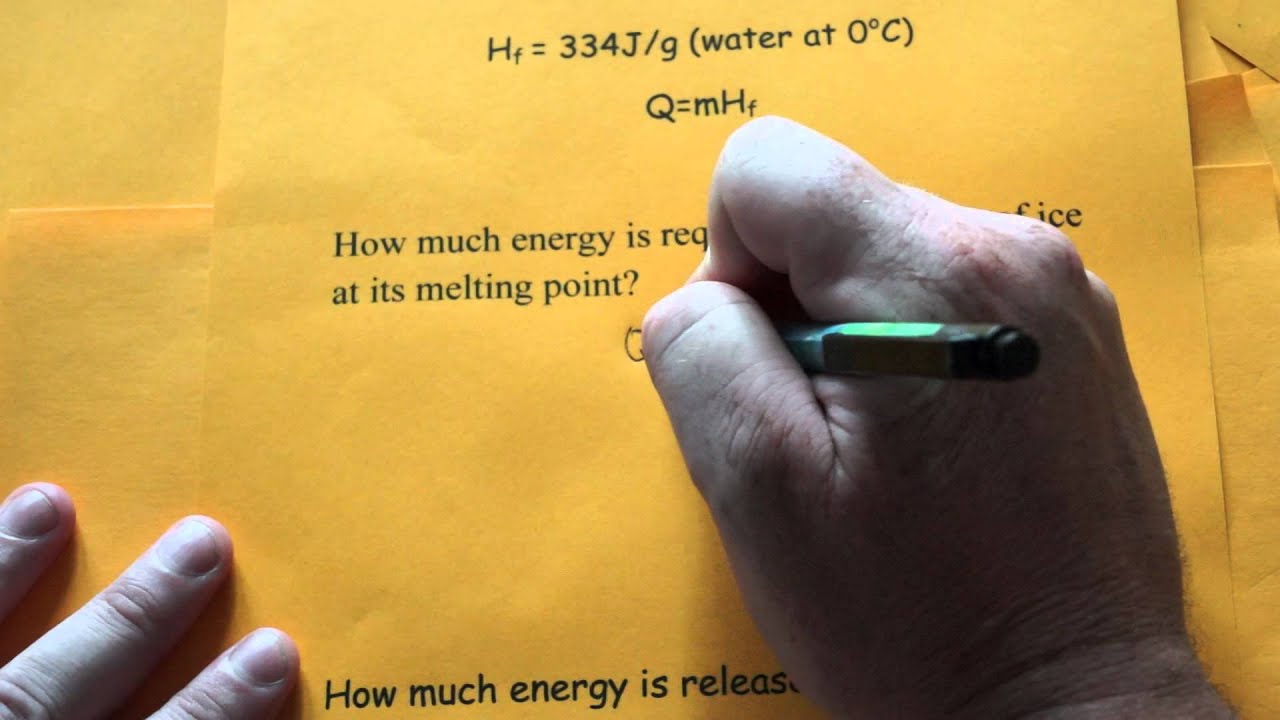 Hf = 334J/g (water at 0°C)
Q=mHf
How much energy is of ice
at its melting point?
Q
How much energy is